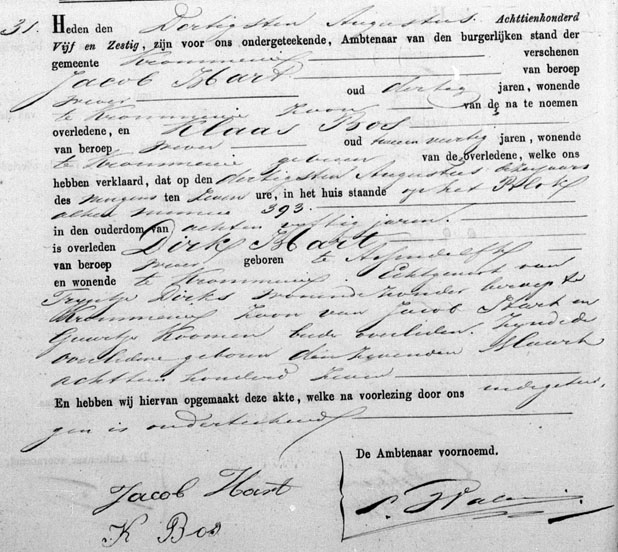 31. Heden den Dertigsten Augustus. Achttienhonderd
Vijf en Zestig, zijn voor ons ondergeteekende, Ambtenaar van den burgerlijken stand der
gemeente Krommenie verschenen
Jacob Hart van beroep
wever oud dertig jaren, wonende
te Krommenie Zoon van de na te noemen
overledene, en Klaas Bos
van beroep wever oud twee en veertig jaren, wonende
te Krommenie gebuur van de overledene, welke ons
hebben verklaard, dat op den dertigsten Augustus dezes jaars
des morgens ten zeven ure, in het huis staande op het Blok
alhier nummer 393.
in den ouderdom van acht en vijftig jaren.
is overleden Dirk Hart
van beroep wever geboren te Assendelft
en wonende te Krommenie Echtgenoot van
Trijntje Dirks wonende zonder beroep te
Krommenie, Zoon van Jacob Hart en
Guurtje Koomen beide overleden. Zijnde de
overledene geboren den zevenden Maart
achttien honderd zeven
En hebben wij hiervan opgemaakt deze akte, welke na voorlezing door ons en de getui,
gen is onderteekend
De Ambtenaar voornoemd.
Jacob Hart
K Bos